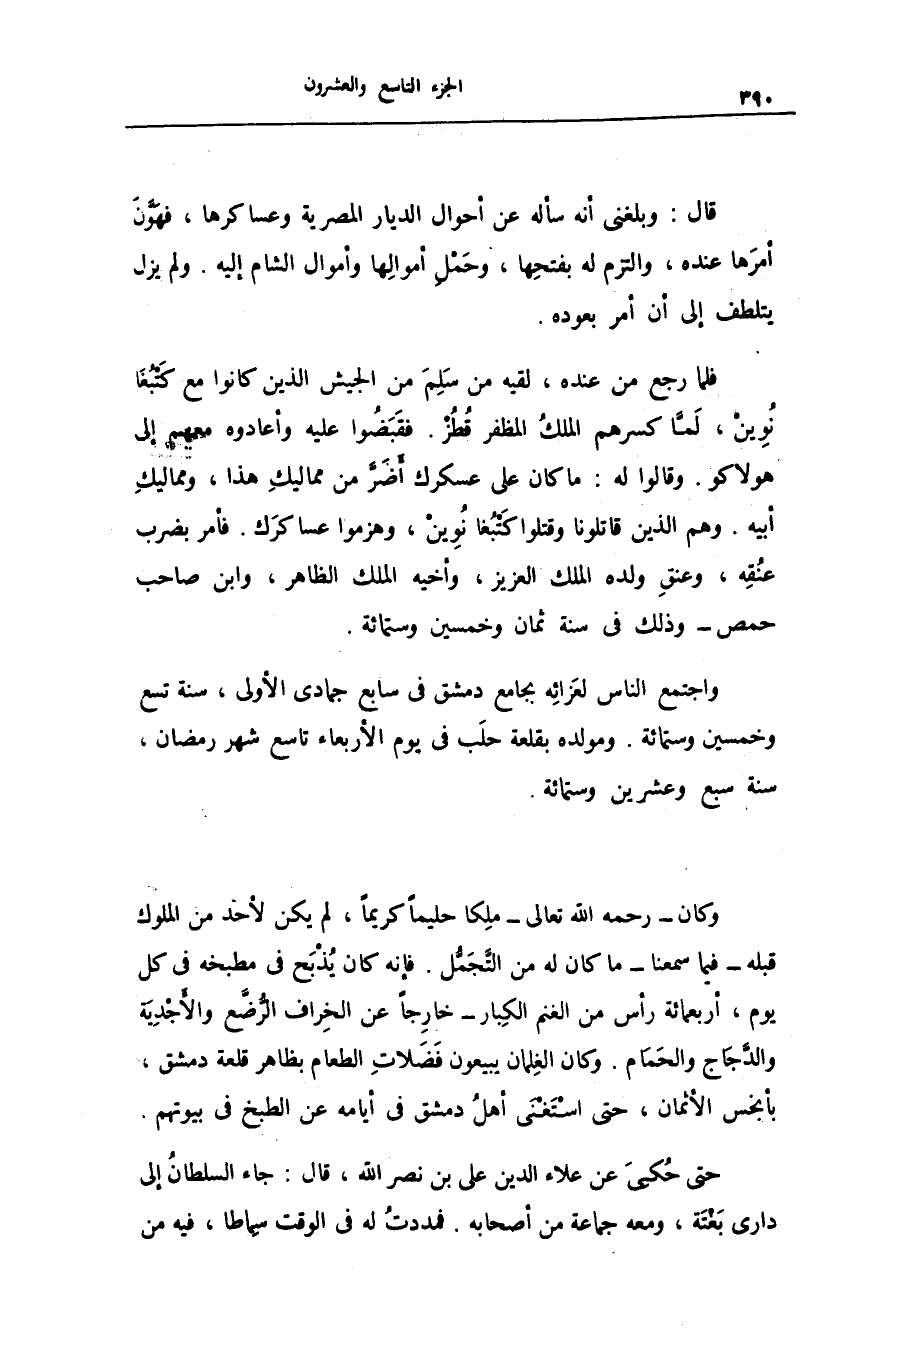 ٣٩٠
الجزء التاسع والعشرون
قال : وبلغنى أنه سأله عن أحوال الديار المصرية وعساكرها ، فهَوَّنَ
أمرَها عنده ، والتزم له بفتحِها ، وحَمْلِ أموالِها وأموال الشام إليه . ولم يزل
يتلطف إلى أن أمر بعوده .
فلما رجع من عنده ، لقيه من سَلِمَ من الجيش الذين كانوا مع كَتْبُغَا
نُوِينْ ، لَمَّا كسرهم الملكُ المظفر قُطُزْ . فقَبَضُوا عليه وأعادوه معهم إلى
هولاكو . وقالوا له : ما كان على عسكرك أَضَرَّ من مماليكِ هذا ، ومماليكِ
أبيه . وهم الذين قاتلونا وقتلوا كَتْبُغا نُوِينْ ، وهزموا عساكرَك . فأمر بضرب
عنُقِه ، وعنقِ ولده الملك العزيز ، وأخيه الملك الظاهر ، وابن صاحب
حمص ــ وذلك فى سنة ثمان وخمسين وستمائة .
واجتمع الناس لعَزائِه بجامع دمشق فى سابع جمادى الأولى ، سنة تسع
وخمسين وستمائة . ومولده بقلعة حلَب فى يوم الأربعاء تاسع شهر رمضان ،
سنة سبع وعشرين وستمائة .
وكان ــ رحمه الله تعالى ــ ملِكا حليماً كريماً ، لم يكن لأحد من الملوك
قبله ــ فيما سمعنا ــ ما كان له من التَّجَمُّل . فإنه كان يُذْبَح فى مطبخه فى كل
يوم ، أربعمائة رأس من الغنم الكِبار ــ خارِجاً عن الخِراف الرُّضَّع والأَجْدِيَة
والدَّجَاج والحَمَام . وكان الغِلمان يبيعون فَضَلاتِ الطعام بظاهر قلعة دمشق ،
بأبخس الأثمان ، حتى اسْتَغْنَى أهلُ دمشق فى أيامه عن الطبخ فى بيوتهم .
حتى حُكِىَ عن علاء الدين على بن نصر الله ، قال : جاء السلطانُ إلى
دارى بَغْتَة ، ومعه جماعة من أصحابه . فمددتُ له فى الوقت سِماطا ، فيه من